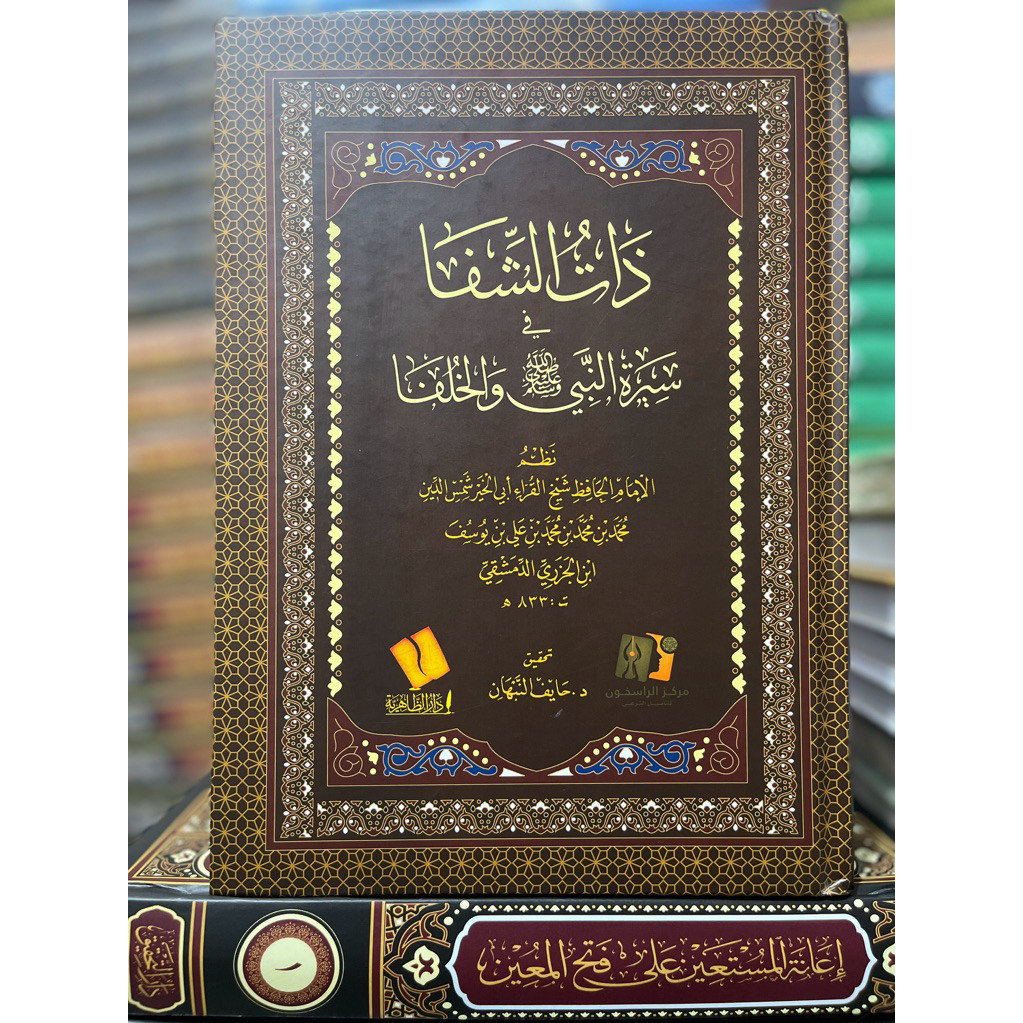 ذَاتُ الشِّفَا
في
سِيرَة النَّبِي ﷺ وَالخُلَفَا
نَظْمُ
الإمام الحافظ شيخ القراء أبي الخير شمس الدين
محمد بن محمد بن محمد بن علي بن يوسف
ابن الجزري الدمشقي
ت: ٨٣٣ هـ
تحقيق
د. حايف النبهان
مركز الراسخون
دار الظاهرية
إعانة المستعين على فتح المعين
١